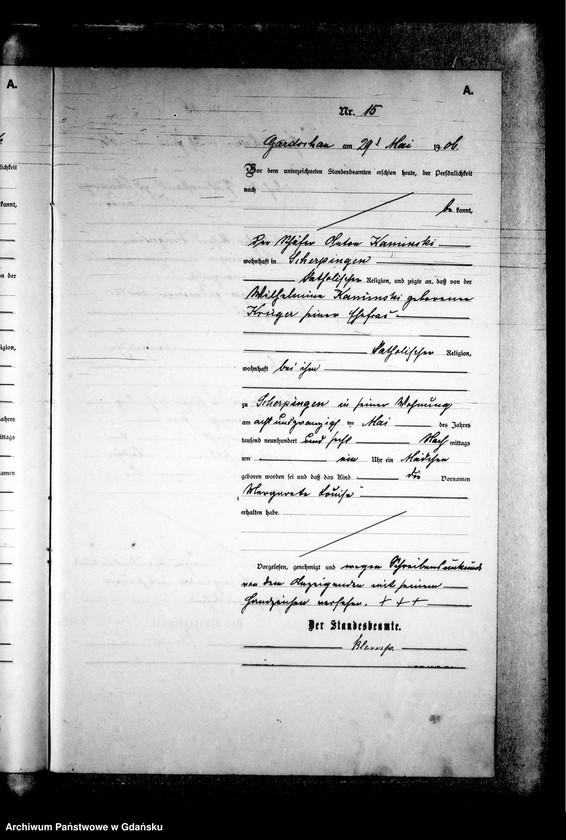 A.
A.
Nr. 15
Gardschau am 29t Mai 1906.
Vor dem unterzeichneten Standesbeamten erschien heute, der Persönlichkeit
nach
be kannt,
der Schäfer Anton Kaminski
wohnhaft in Scherpingen
katholischer Religion, und zeigte an, daß von der
Wilhelmine Kaminski geborenen
Krüger seiner Ehefrau
katholischer Religion,
wohnhaft bei ihm
zu Scherpingen in seiner Wohnung
am acht und zwanzigsten Mai des Jahres
tausend neunhundert und sechs Nach mittags
um ein Uhr ein Mädchen
geboren worden sei und daß das Kind die Vornamen
Margarete Louise
erhalten habe.
Vorgelesen, genehmigt und wegen Schreibensunkunde
von dem Anzeigenden mit seinem
Handzeichen versehen. + + +
Der Standesbeamte.
Archiwum Państwowe w Gdańsku